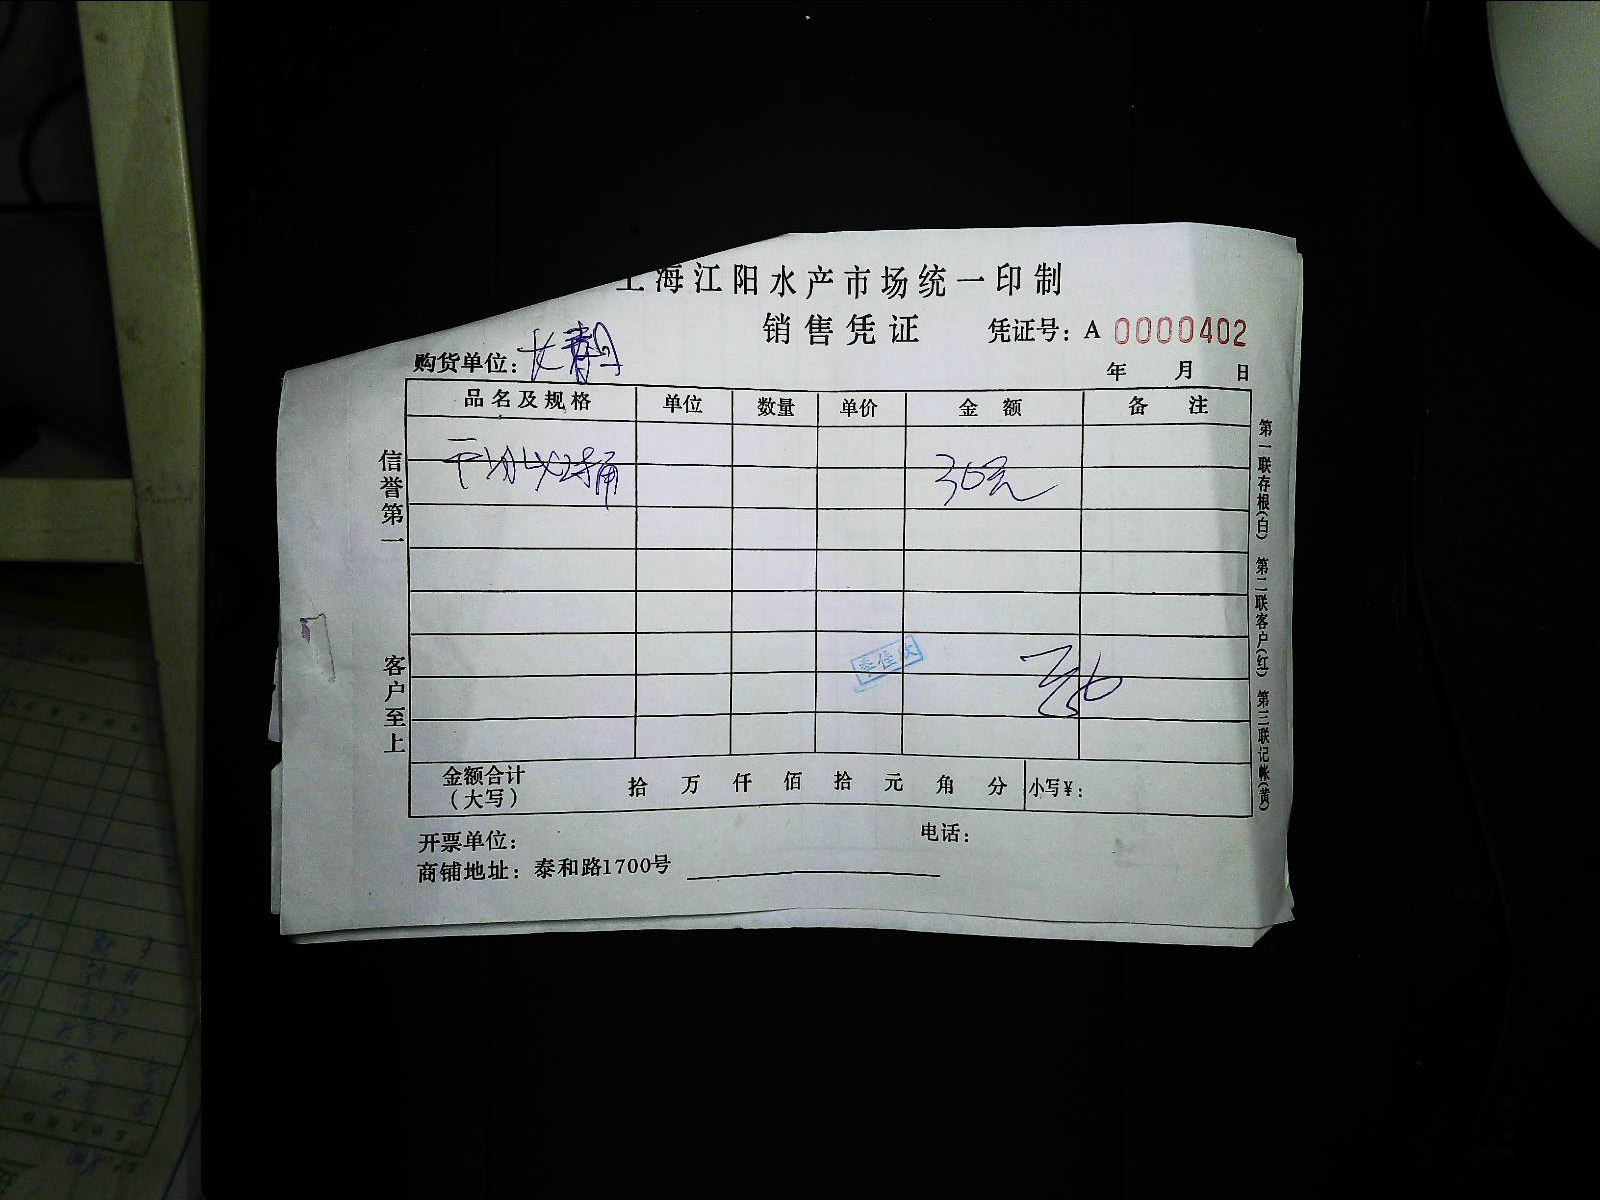 上海江阳水产市场统一印制
销售凭证 凭证号: A 0000402
购货单位:
年 月 日
品名及规格 单位 数量 单价 金额 备注
30元
信誉第一
客户至上
金额合计(大写) 拾 万 仟 佰 拾 元 角 分 小写¥:
开票单位: 电话:
商铺地址: 泰和路1700号
第一联存根(白) 第二联客户(红) 第三联记帐(黄)